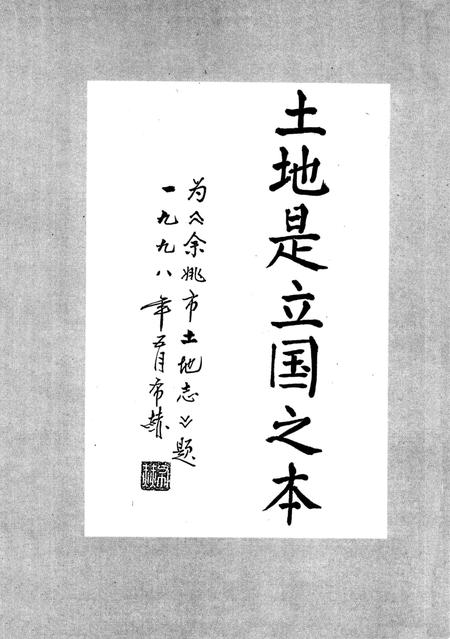 土地是立国之本
为《余姚市土地志》题
一九九八年五月布赫
布赫